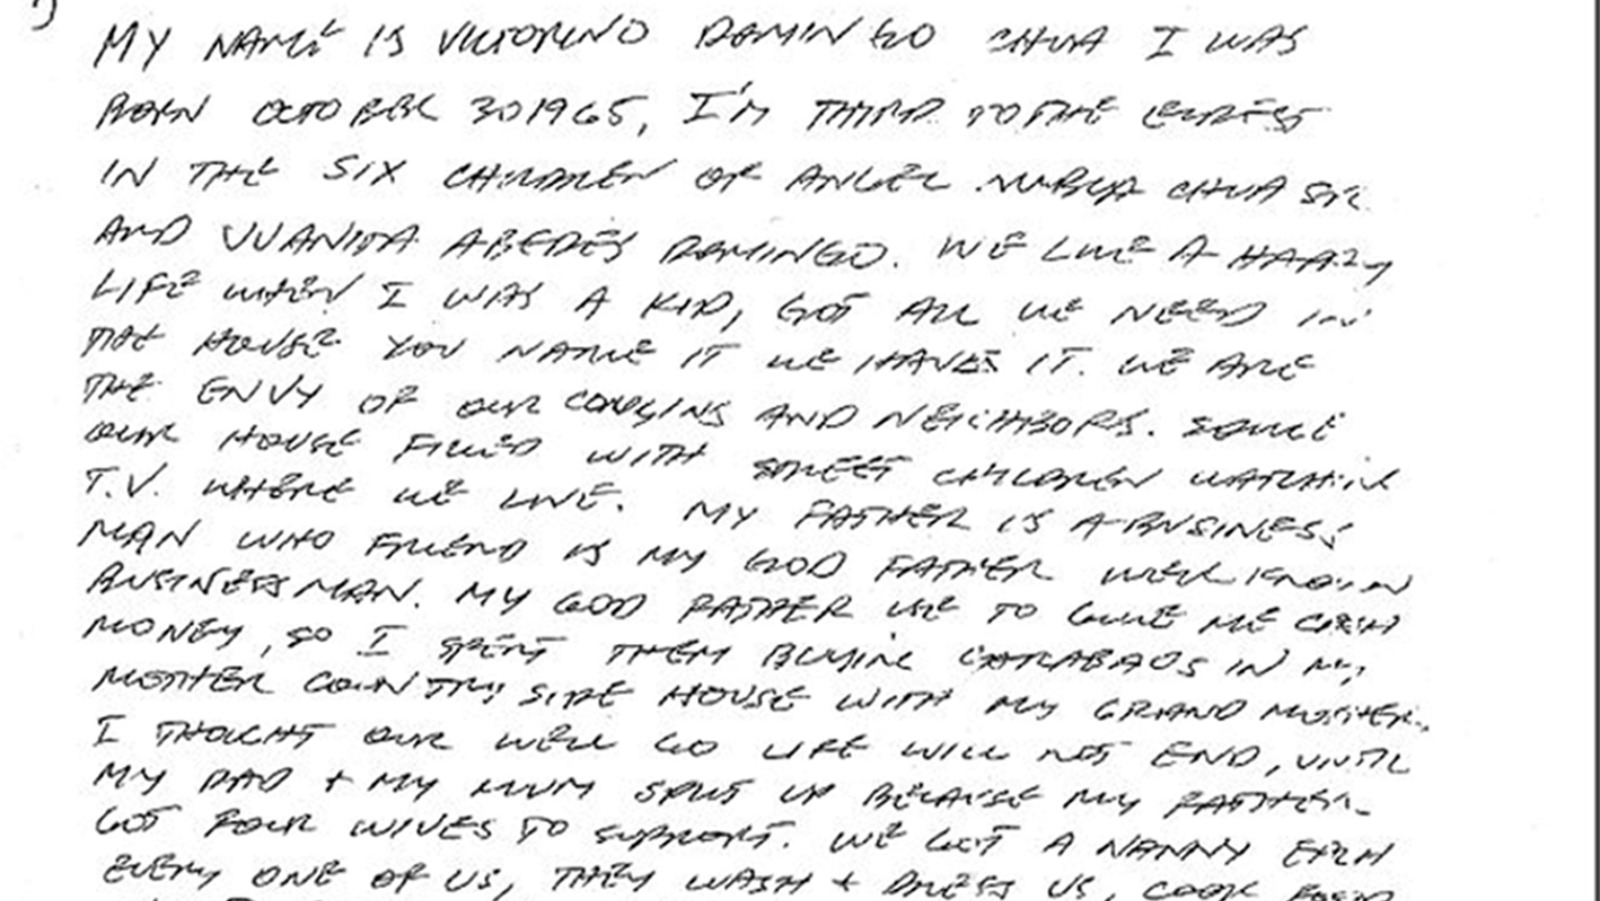 MY NAME IS VICTORINO DOMINGO CHUA I WAS
BORN OCTOBER 30 1965, I'M THIRD TO THE ELDEST
IN THE SIX CHILDREN OF ANGEL CHUA SR.
AND JUANITA ABEDES DOMINGO. WE LIVE A HAPPY
LIFE WHEN I WAS A KID, GOT ALL WE NEED IN
THE HOUSE YOU NAME IT WE HAVE IT. WE ARE
THE ENVY OF OUR COUSINS AND NEIGHBORS.
OUR HOUSE FILLED WITH STREET CHILDREN WATCHING
T.V. WHERE WE LIVE. MY FATHER IS A BUSINESS
MAN WHO FRIEND IS MY GOD FATHER WELL KNOWN
BUSINESS MAN. MY GOD FATHER USE TO GIVE ME CASH
MONEY, SO I SPENT THEM BUYING CARABAOS IN MY
MOTHER COUNTRY SIDE HOUSE WITH MY GRAND MOTHER.
I THOUGHT OUR WELL GO LIFE WILL NOT END, UNTIL
MY DAD + MY MUM SPLIT UP BECAUSE MY FATHER
GOT FOUR WIVES TO SUPPORT. WE GOT A NANNY EACH
EVERY ONE OF US, THEY WASH + DRESS US, COOK FOOD